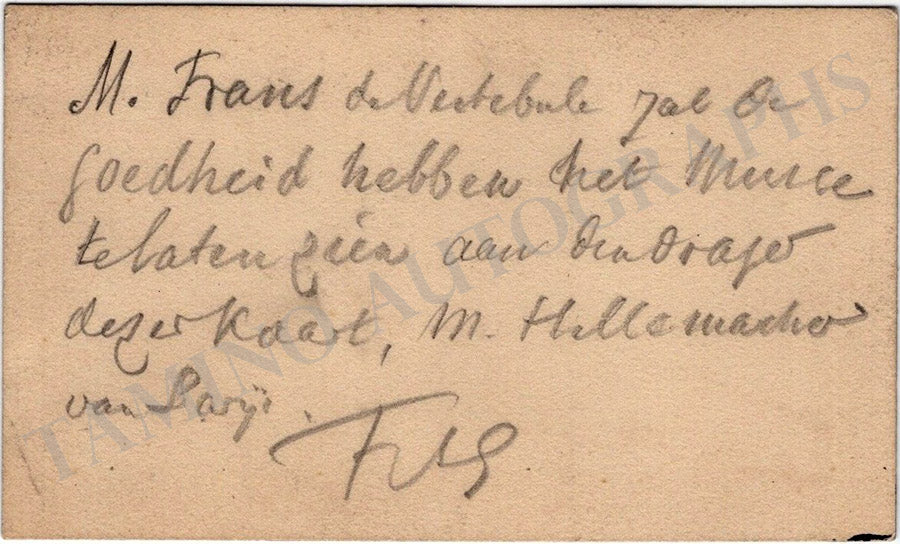 M. Frans de Vestebule zal de
goedheid hebben het Musee
te laten zien aan den drager
dezer kaart, M. Hillemacher
van Parijs.
TAMINO AUTOGRAPHS